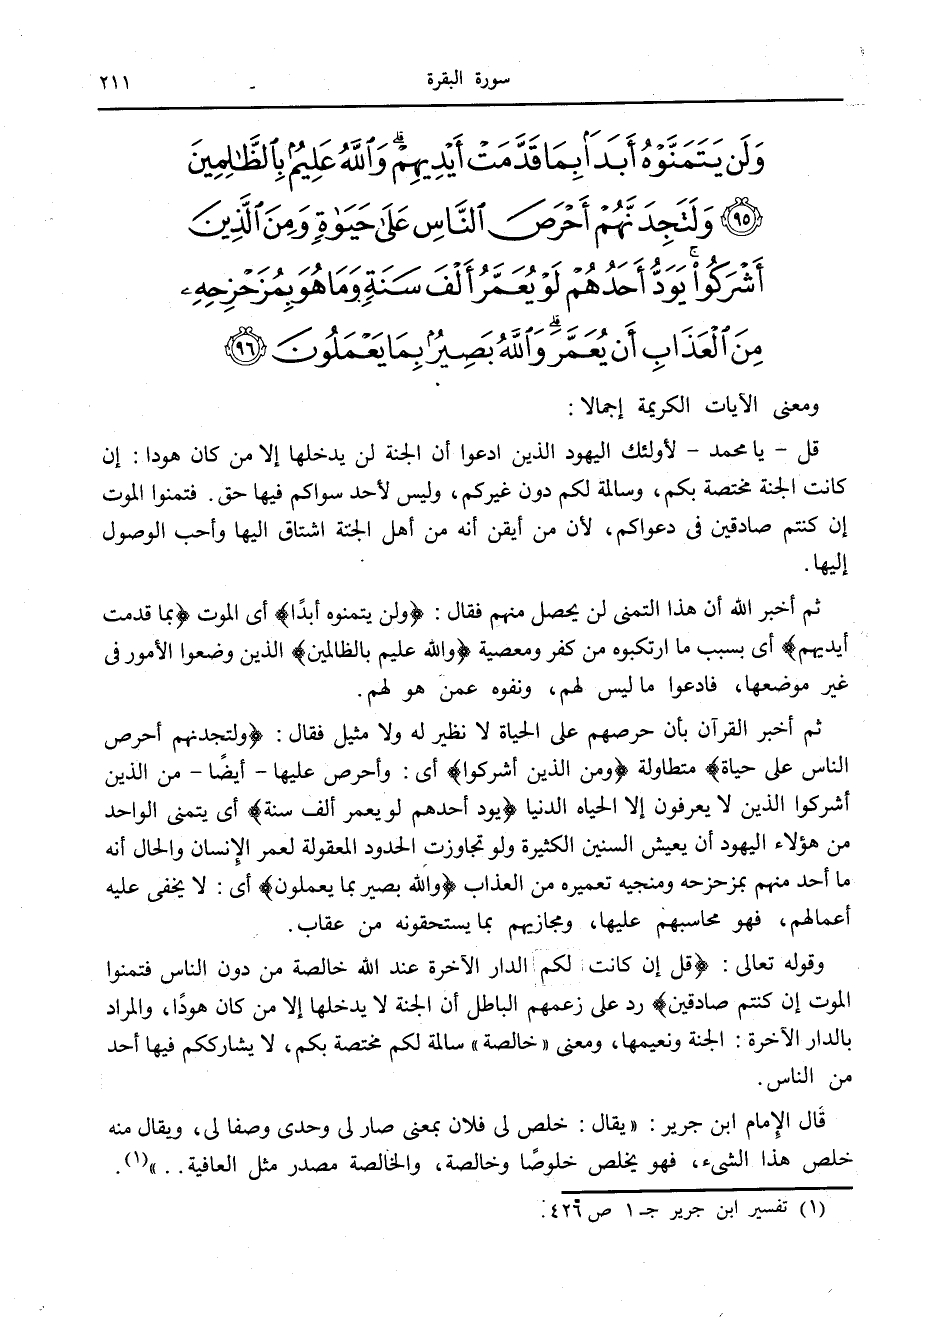 سورة البقرة ٢١١
وَلَن يَتَمَنَّوْهُ أَبَدًا بِمَا قَدَّمَتْ أَيْدِيهِمْ ۗ وَٱللَّهُ عَلِيمٌۢ بِٱلظَّٰلِمِينَ
﴿٩٥﴾ وَلَتَجِدَنَّهُمْ أَحْرَصَ ٱلنَّاسِ عَلَىٰ حَيَوٰةٍ وَمِنَ ٱلَّذِينَ
أَشْرَكُوا۟ ۚ يَوَدُّ أَحَدُهُمْ لَوْ يُعَمَّرُ أَلْفَ سَنَةٍ وَمَا هُوَ بِمُزَحْزِحِهِۦ
مِنَ ٱلْعَذَابِ أَن يُعَمَّرَ ۗ وَٱللَّهُ بَصِيرٌۢ بِمَا يَعْمَلُونَ ﴿٩٦﴾
ومعنى الآيات الكريمة إجمالا :
قل - يا محمد - لأولئك اليهود الذين ادعوا أن الجنة لن يدخلها إلا من كان هودا : إن
كانت الجنة مختصة بكم، وسالمة لكم دون غيركم، وليس لأحد سواكم فيها حق. فتمنوا الموت
إن كنتم صادقين فى دعواكم، لأن من أيقن أنه من أهل الجنة اشتاق اليها وأحب الوصول
إليها.
ثم أخبر الله أن هذا التمنى لن يحصل منهم فقال : ﴿ولن يتمنوه أبدًا﴾ أى الموت ﴿بما قدمت
أيديهم﴾ أى بسبب ما ارتكبوه من كفر ومعصية ﴿والله عليم بالظالمين﴾ الذين وضعوا الأمور فى
غير موضعها، فادعوا ما ليس لهم، ونفوه عمن هو لهم.
ثم أخبر القرآن بأن حرصهم على الحياة لا نظير له ولا مثيل فقال : ﴿ولتجدنهم أحرص
الناس على حياة﴾ متطاولة ﴿ومن الذين أشركوا﴾ أى : وأحرص عليها - أيضًا - من الذين
أشركوا الذين لا يعرفون إلا الحياه الدنيا ﴿يود أحدهم لو يعمر ألف سنة﴾ أى يتمنى الواحد
من هؤلاء اليهود أن يعيش السنين الكثيرة ولو تجاوزت الحدود المعقولة لعمر الإنسان والحال أنه
ما أحد منهم بمزحزحه ومنجيه تعميره من العذاب ﴿والله بصير بما يعملون﴾ أى : لا يخفى عليه
أعمالهم، فهو محاسبهم عليها، ومجازيهم بما يستحقونه من عقاب.
وقوله تعالى : ﴿قل إن كانت لكم الدار الآخرة عند الله خالصة من دون الناس فتمنوا
الموت إن كنتم صادقين﴾ رد على زعمهم الباطل أن الجنة لا يدخلها إلا من كان هودًا، والمراد
بالدار الآخرة : الجنة ونعيمها، ومعنى « خالصة » سالمة لكم مختصة بكم، لا يشارككم فيها أحد
من الناس.
قال الإمام ابن جرير : « يقال : خلص لى فلان بمعنى صار لى وحدى وصفا لى، ويقال منه
خلص هذا الشىء، فهو يخلص خلوصًا وخالصة، والخالصة مصدر مثل العافية. . »(١).
(١) تفسير ابن جرير جـ ١ ص ٤٢٦.